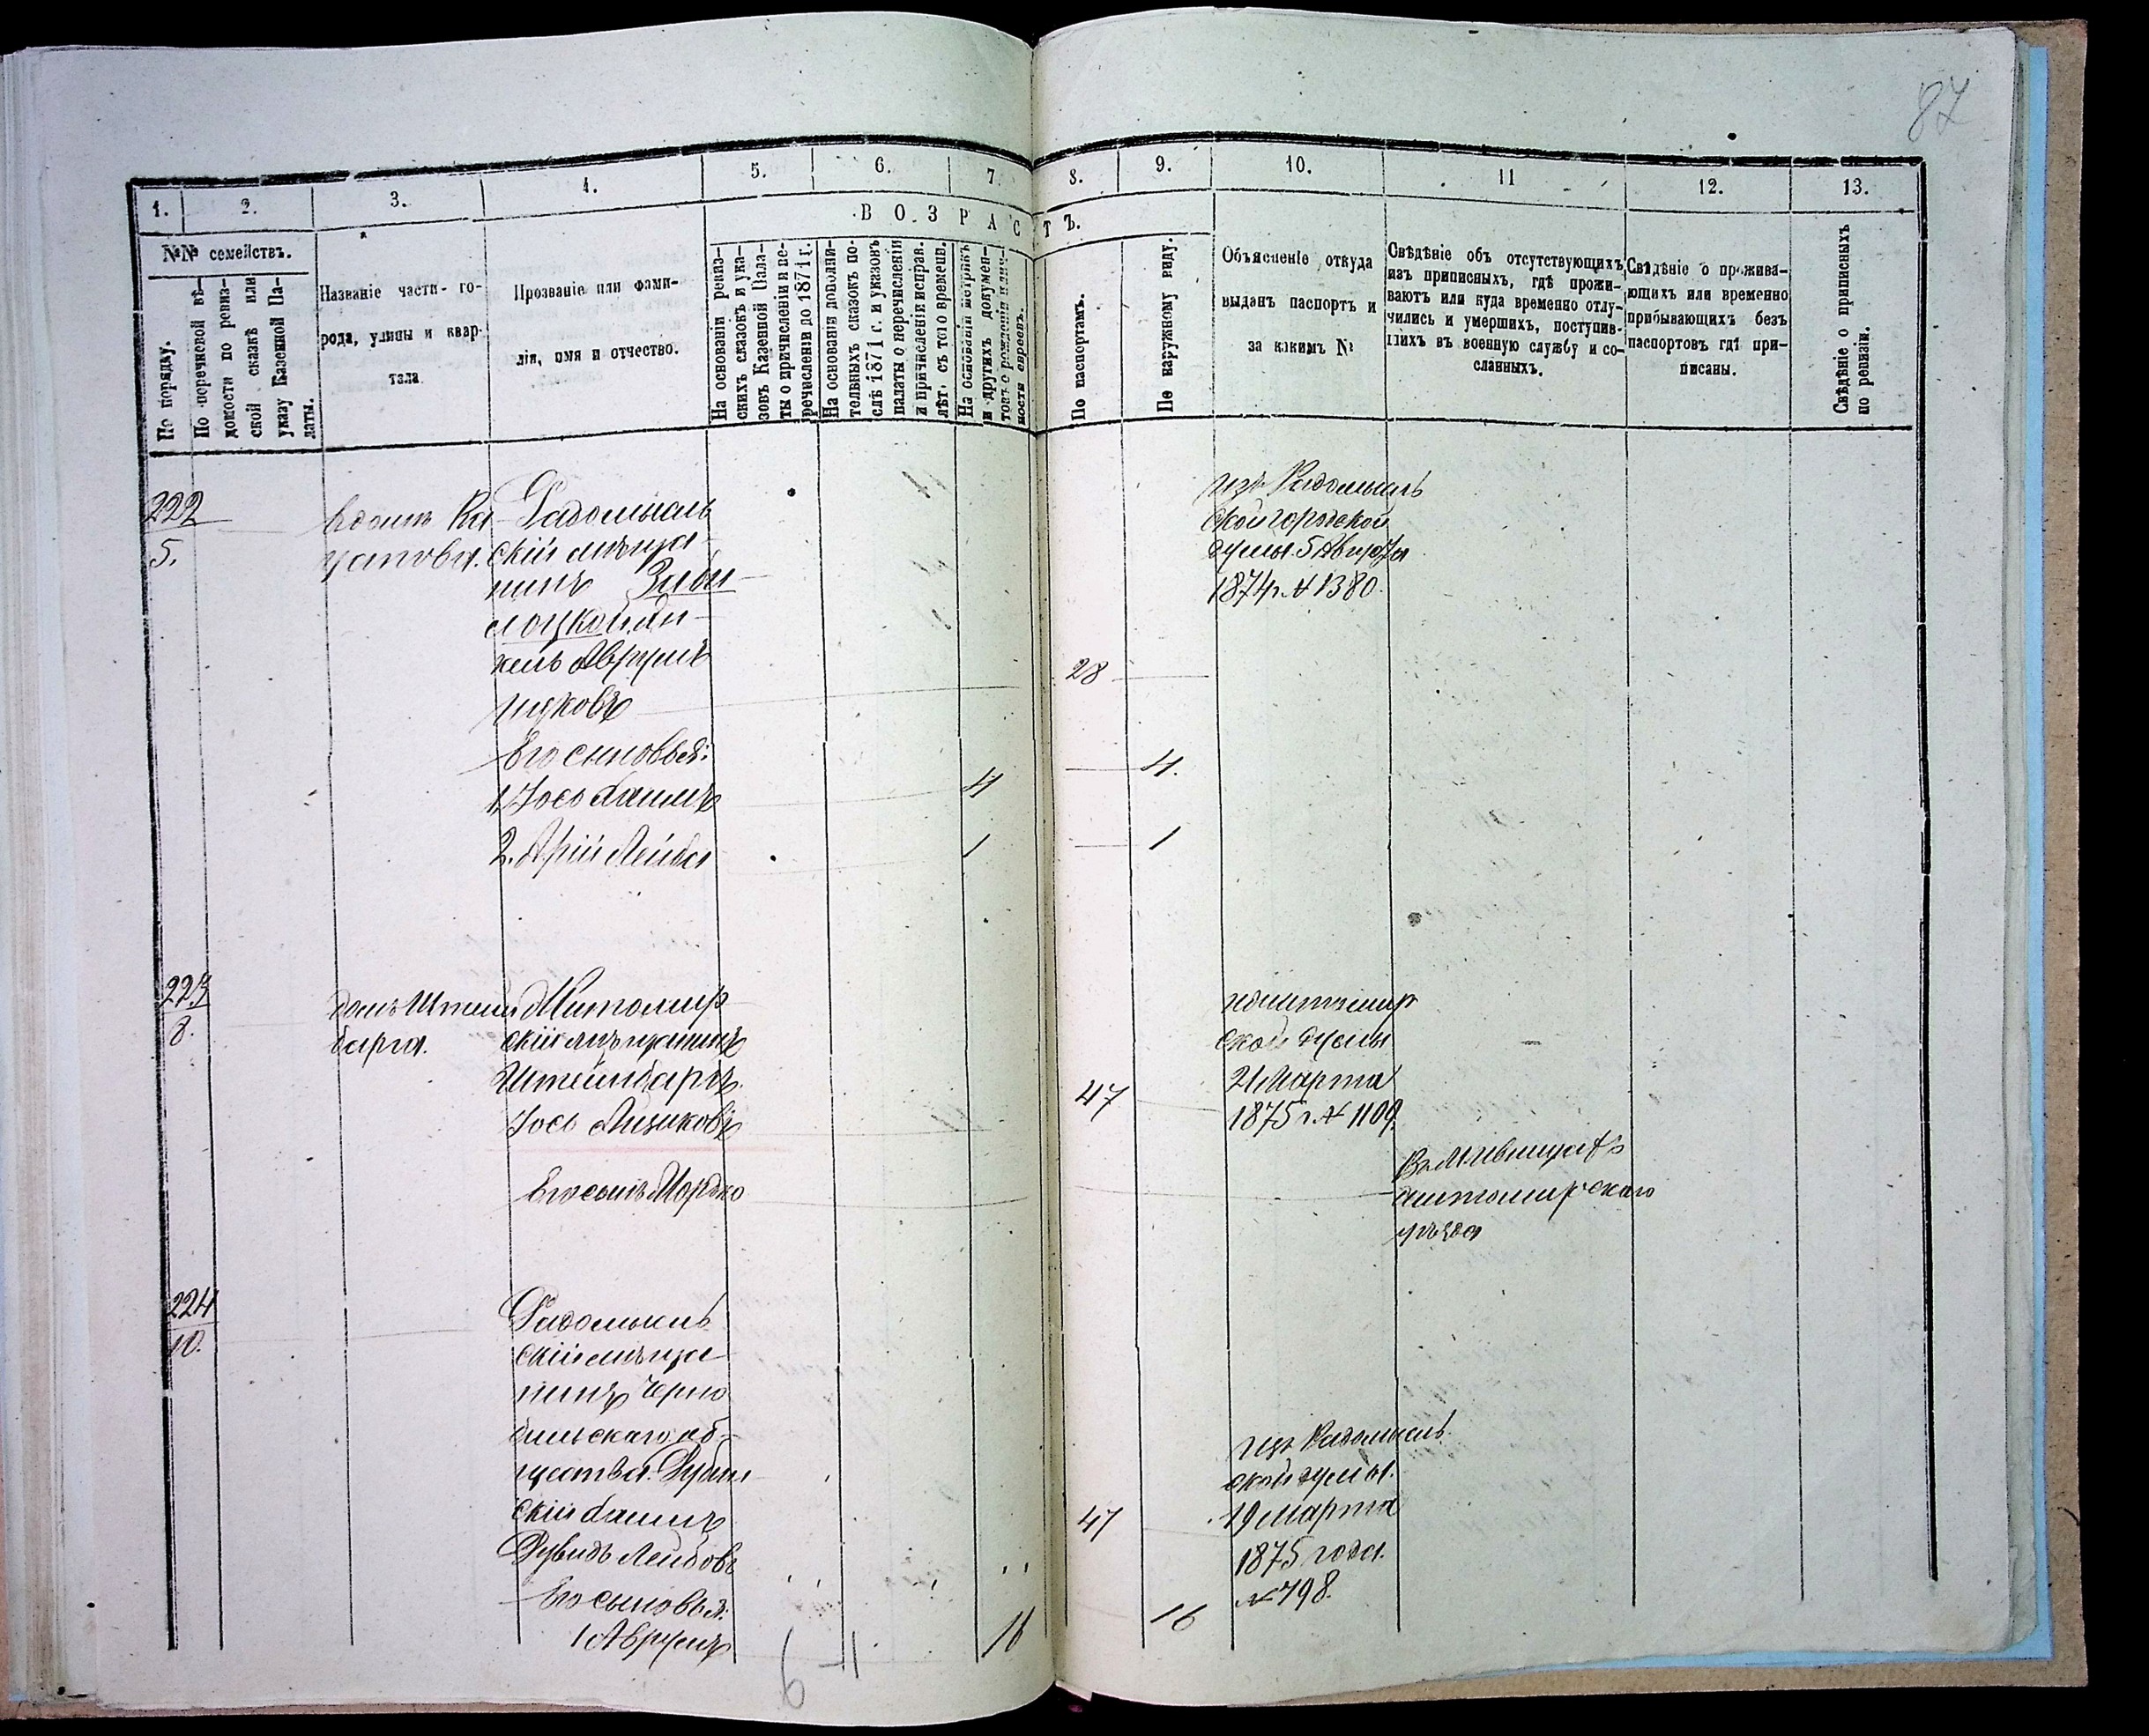 87
1.
2.
3.
4.
5.
6.
7.
8.
9.
10.
11
12.
13.
№№ семействъ.
В О З Р А С Т Ъ.
По порядку.
По перечковой вѣ-
домости по ревиз-
ской сказкѣ или
указу Казенной Па-
латы.
Названіе части го-
рода, улицы и квар-
тала
Прозваніе или фами-
лія, имя и отчество.
На основаніи ревиз-
скихъ сказокъ и ука-
зовъ Казенной Пала-
ты о причисленіи и пе-
речисленіи до 1871 г.
На основаніи дополни-
тельныхъ сказокъ по-
слѣ 1871 г. и указовъ
палаты о перечисленіи
и причисленіи исправ.
лѣт. съ того времени.
На основаніи метрикъ
и другихъ докумен-
товъ о рожденіи и лич-
ности евреевъ.
По паспортамъ.
По наружному виду.
Объясненіе откуда
выданъ паспортъ и
за какимъ №
Свѣдѣніе объ отсутствующихъ
изъ приписныхъ, гдѣ прожи-
ваютъ или куда временно отлу-
чились и умершихъ, поступив-
шихъ въ военную службу и со-
сланныхъ.
Свѣдѣніе о прожива-
ющихъ или временно
прибывающихъ безъ
паспортовъ гдѣ при-
писаны.
Свѣдѣніе о приписныхъ
по ревизіи.
222
5.
Радомысль
скій мѣща-
нинъ
Аврумъ
Ицковъ
28
изъ Радомысль
ской городской
думы. 5 Августа
1874 г. № 1380.
Его сыновья:
1, Иось Хаимъ
4
4.
2. Арій Лейба
1
1
223
8.
домъ Штейн
барга.
Житомир
скій мѣщанинъ
Штейнбаргъ.
Иось Айзиковъ
47
ской думы
21 Марта
1875 г. № 1109.
Его сынъ Мордко
житомирскаго
уѣзда
224
10.
Радомысль
скій мѣща
нинъ Черно
быльскаго об-
щества. Рубин
скій Хаимъ
Дувидъ Лейбовъ
47
изъ Радомысль
ской думы.
19 Марта
1875 года.
№ 798.
Его сыновья:
1 Аврумъ
16
16
9